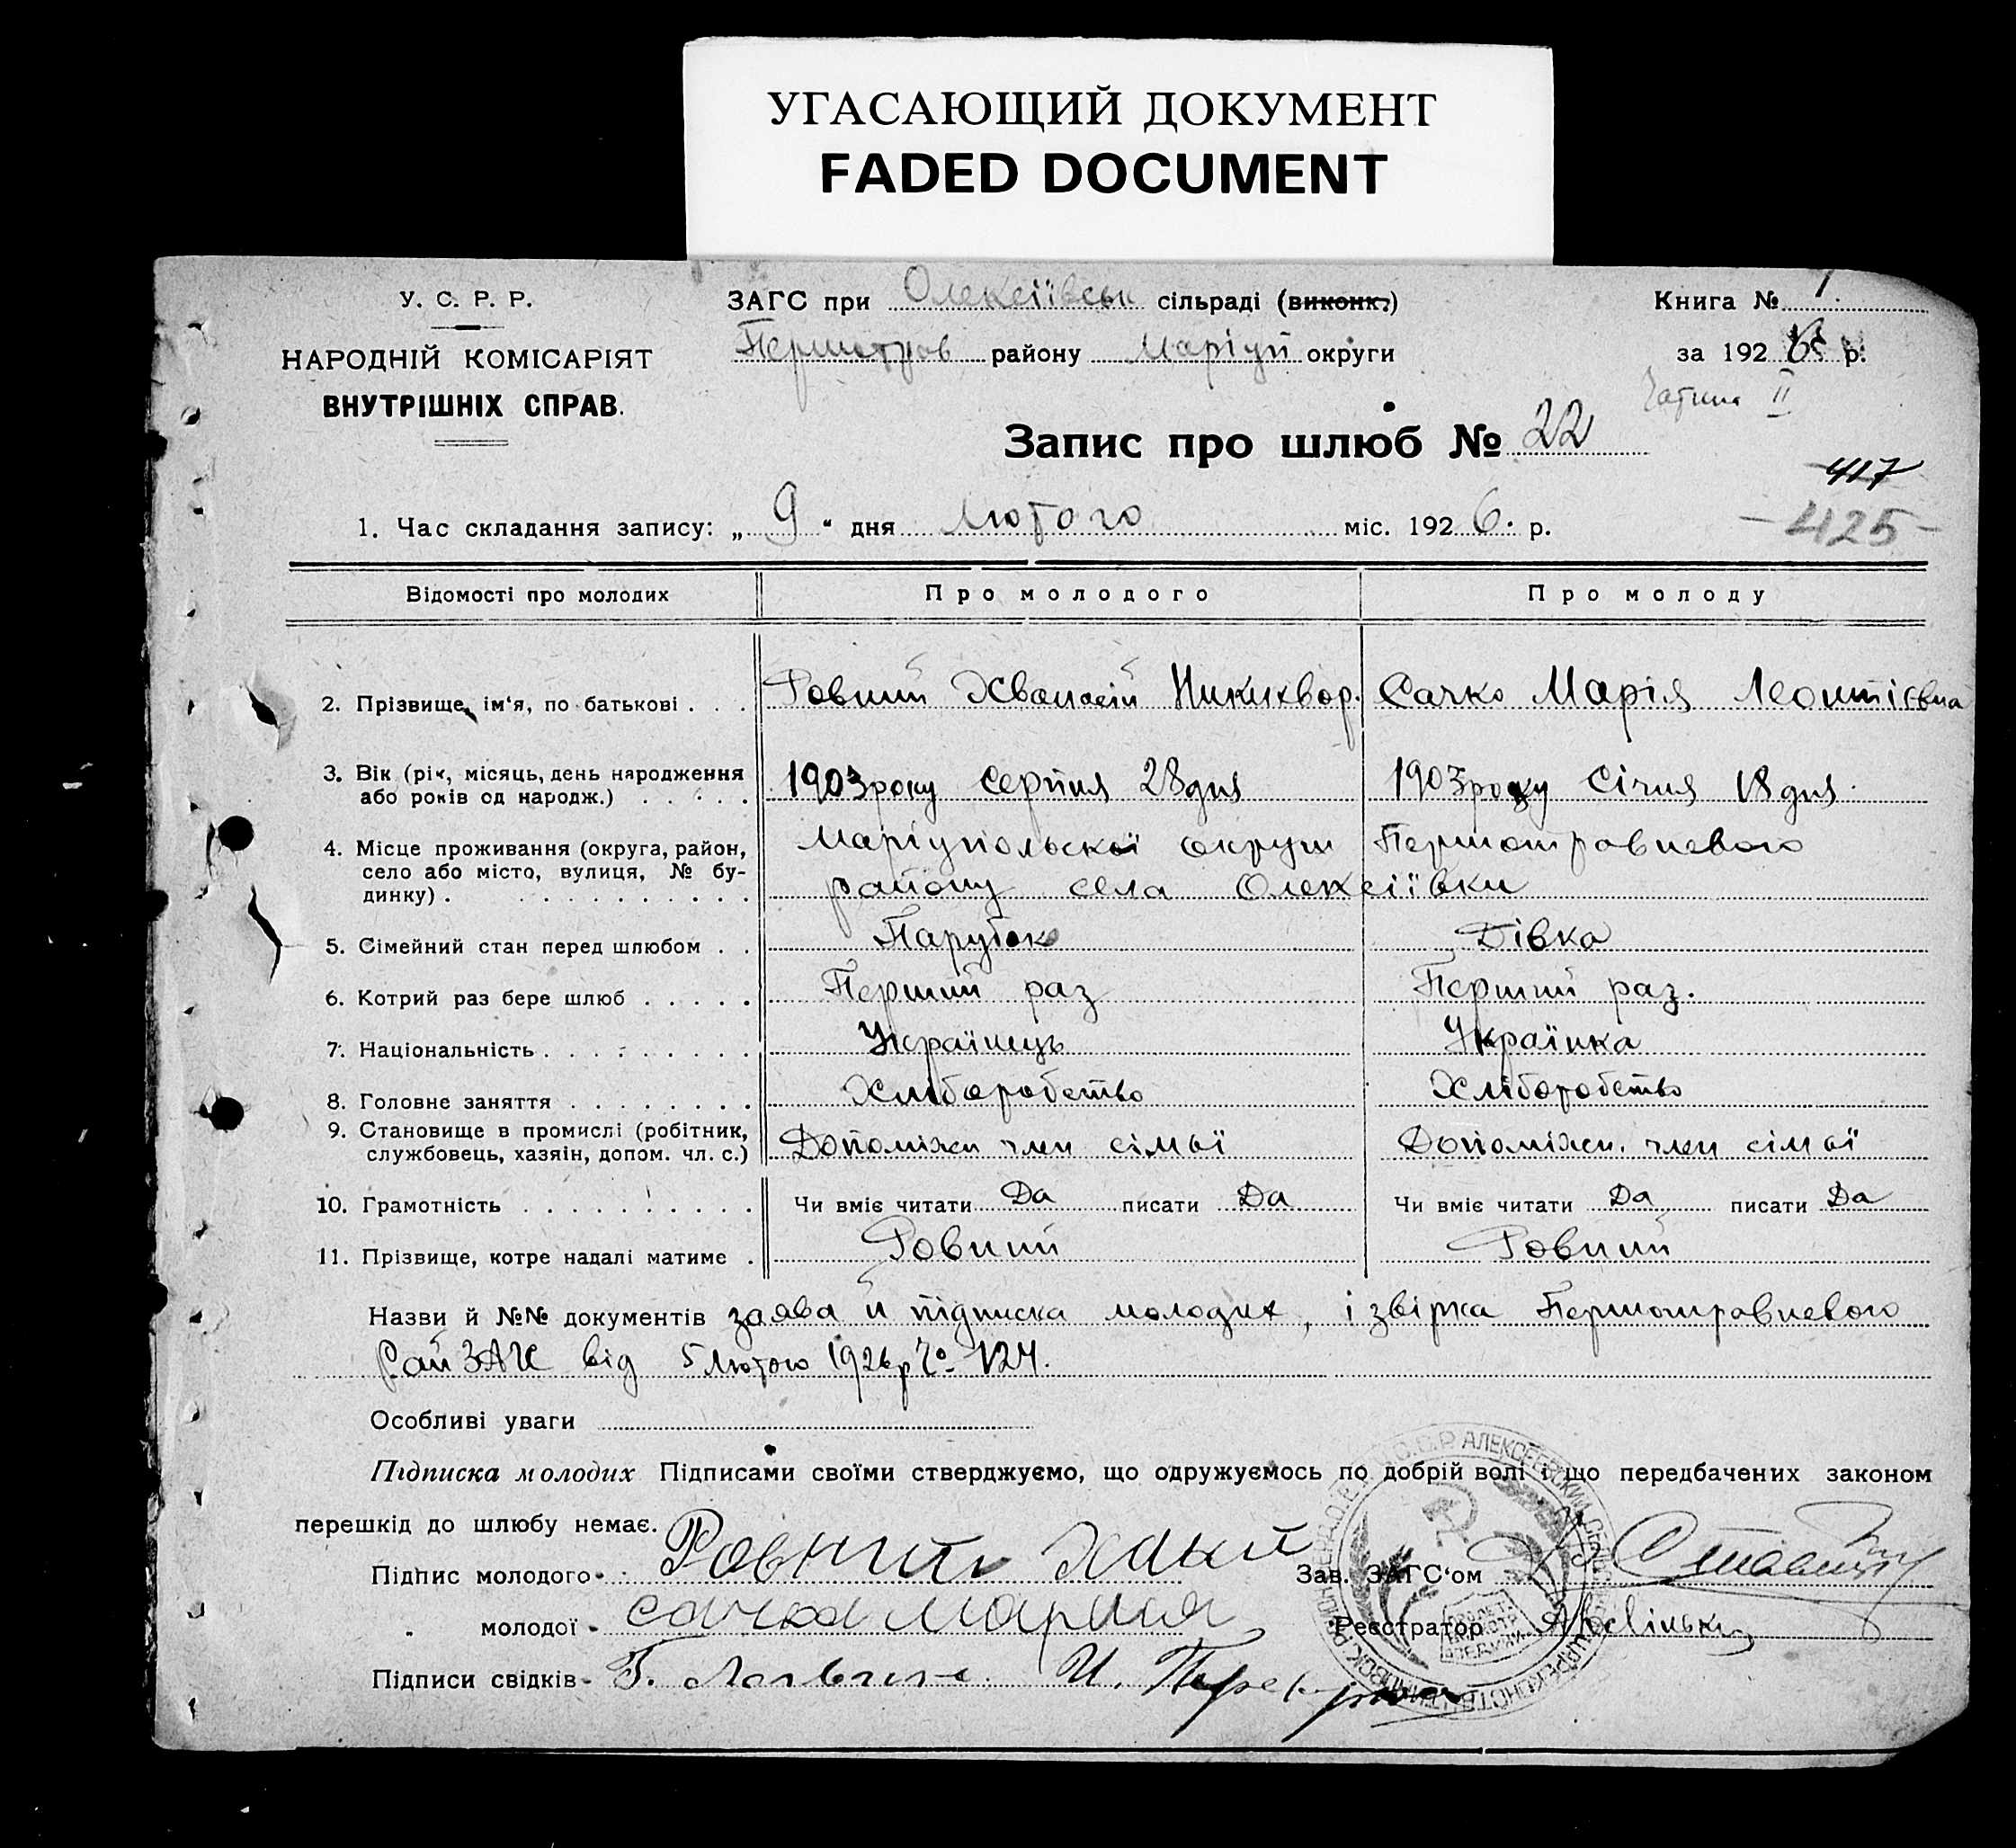 УГАСАЮЩИЙ ДОКУМЕНТ
FADED DOCUMENT
У. С. Р. Р.
НАРОДНІЙ КОМІСАРІЯТ
ВНУТРІШНІХ СПРАВ.
ЗАГС при Олексіївськ сільраді (виконк.)
Першотрав району Маріуп округи
Книга № 1
за 1926 р.
Частина II
Запис про шлюб № 22
417
-425-
1. Час складання запису: „9“ дня Лютого міс. 1926. р.
Відомості про молодих Про молодого Про молоду
2. Прізвище, ім'я, по батькові . . . Ровний Хванасій Никихвор. Сачко Марія Леонтієвна
3. Вік (рік, місяць, день народження або років од народж.) . . . . . 1903 року Серпня 28 дня 1903 року Січня 18 дня.
4. Місце проживання (округа, район, Маріупольскої округи Першотравневого
село або місто, вулиця, № бу-
динку) . . . . . . . . . . . району села Олексіївки
5. Сімейний стан перед шлюбом . . Парубок Дівка
6. Котрий раз бере шлюб . . . . . Перший раз Перший раз.
7. Національність . . . . . . . . . Українець Українка
8. Головне заняття . . . . . . . . Хліборобство Хліборобство
9. Становище в промислі (робітник,
службовець, хазяін, допом. чл. с.) Допоміжн член сімьї Допоміжн. член сімьї
10. Грамотність . . . . . . . . . . Чи вміє читати Да писати Да Чи вміє читати Да писати Да
11. Прізвище, котре надалі матиме . Ровний Ровний
Назви й №№ документів заява й підписка молодих, і звірка Першотравневого
Рай ЗАГС від 5 Лютого 1926 р Чо 124.
Особливі уваги
Підписка молодих Підписами своїми стверджуємо, що одружуємось по добрій волі і що передбачених законом
перешкід до шлюбу немає.
Підпис молодого Ровний
Зав. ЗАГС'ом
„ молодої Сачка Мария
Реєстратор
Підписи свідків Г. И.